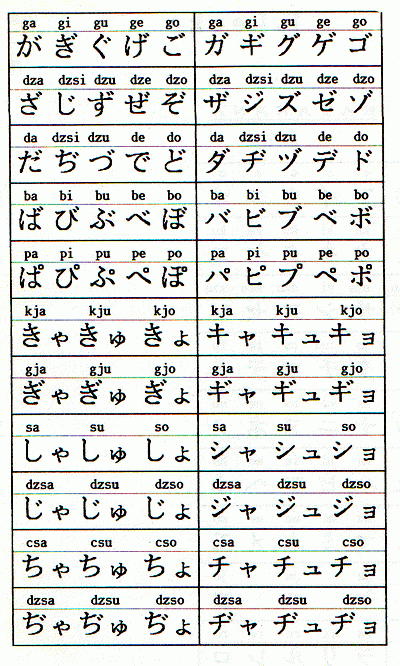 ga gi gu ge go ga gi gu ge go
が ぎ ぐ げ ご ガ ギ グ ゲ ゴ
dza dzsi dzu dze dzo dza dzsi dzu dze dzo
ざ じ ず ぜ ぞ ザ ジ ズ ゼ ゾ
da dzsi dzu de do da dzsi dzu de do
だ ぢ づ で ど ダ ヂ ヅ デ ド
ba bi bu be bo ba bi bu be bo
ば び ぶ べ ぼ バ ビ ブ ベ ボ
pa pi pu pe po pa pi pu pe po
ぱ ぴ ぷ ぺ ぽ パ ピ プ ペ ポ
kja kju kjo kja kju kjo
きゃ きゅ きょ キャ キュ キョ
gja gju gjo gja gju gjo
ぎゃ ぎゅ ぎょ ギャ ギュ ギョ
sa su so sa su so
しゃ しゅ しょ シャ シュ ショ
dzsa dzsu dzso dzsa dzsu dzso
じゃ じゅ じょ ジャ ジュ ジョ
csa csu cso csa csu cso
ちゃ ちゅ ちょ チャ チュ チョ
dzsa dzsu dzso dzsa dzsu dzso
ぢゃ ぢゅ ぢょ ヂャ ヂュ ヂョ